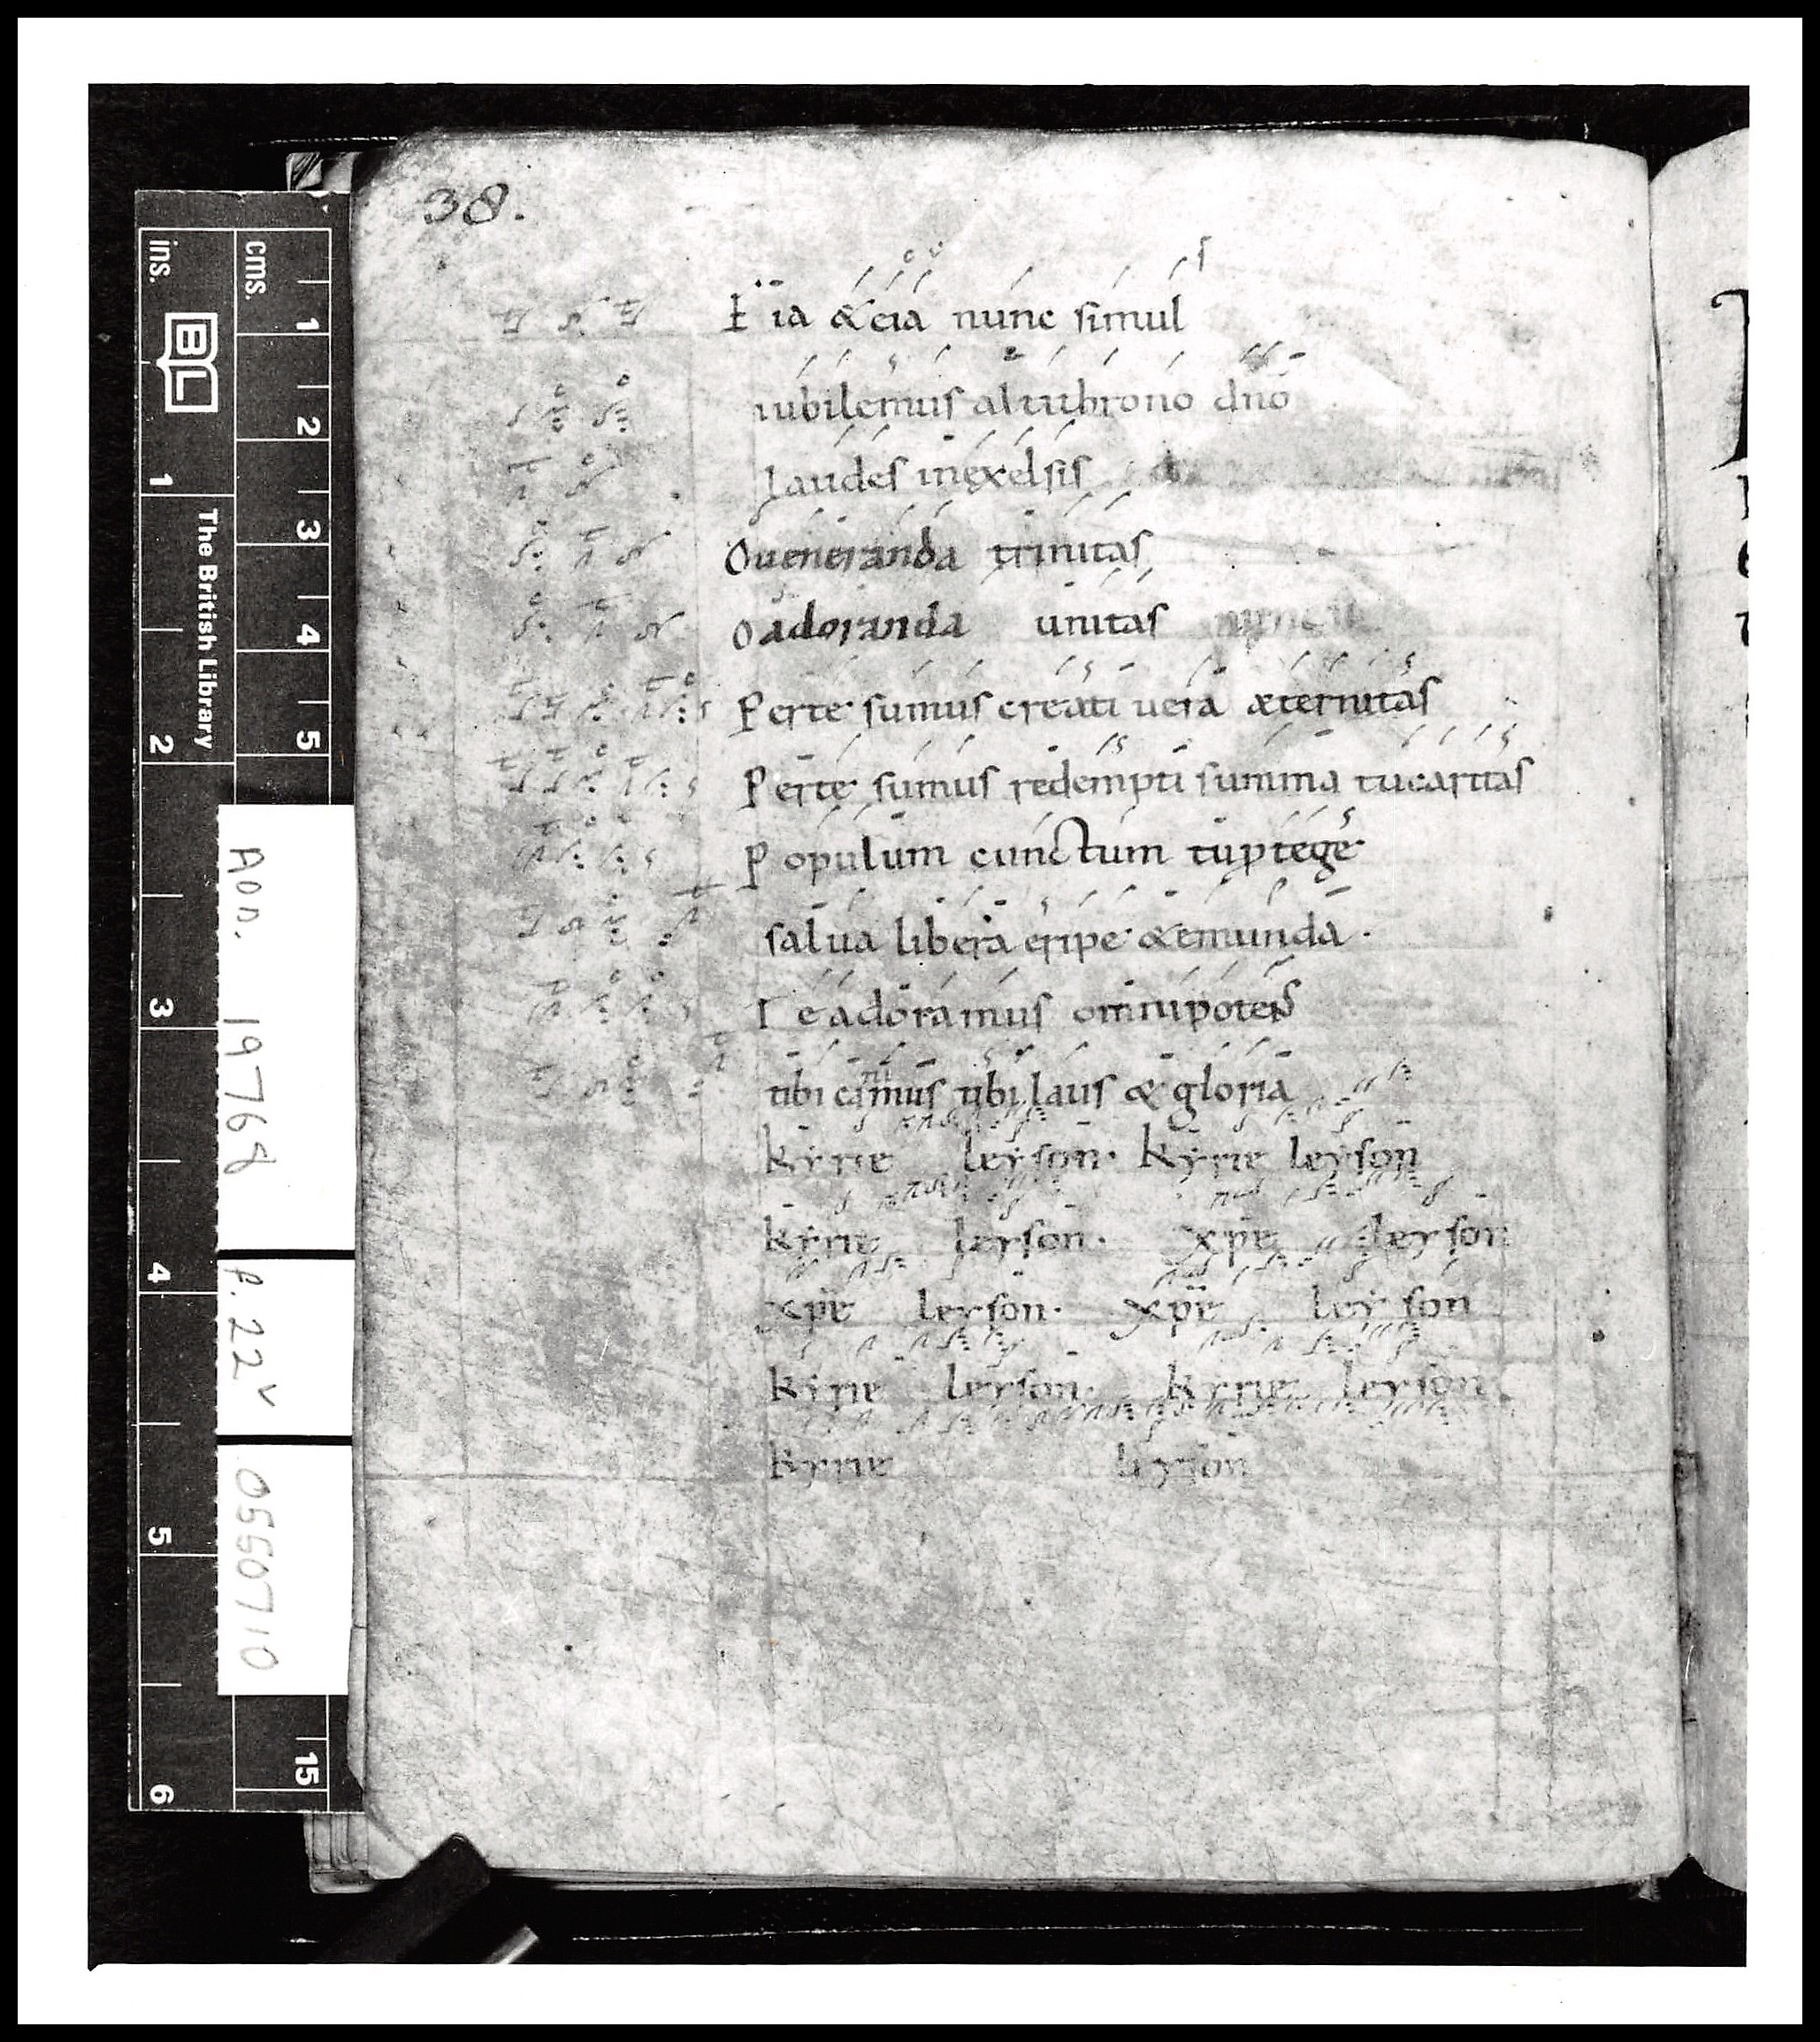 38.
Eia & eia nunc simul
iubilemus altithrono dño
laudes inexelsis
O ueneranda trinitas
O adoranda unitas
Perte sumus creati uera æternitas
Perte sumus redempti summa tu caritas
Populum cunctum tu ptege
salua libera eripe & emunda.
Te adoramus omnipotens
tibi canimus tibi laus & gloria
kyrie leyson. kyrie leyson
kyrie leyson. xp̄e leyson
xp̄e leyson. xp̄e leyson
kyrie leyson. kyrie leyson.
kyrie leyson
ins.
cms.
BL
The British Library
1
2
3
4
5
15
1
2
3
4
5
6
ADD. 19768
f. 22v
0550710